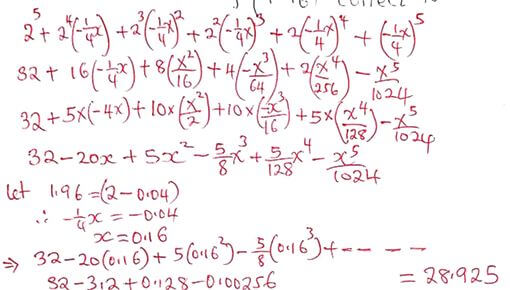 2⁵ + 2⁴(-1/4x) + 2³(-1/4x)² + 2²(-1/4x)³ + 2(-1/4x)⁴ + (-1/4x)⁵
32 + 16(-1/4x) + 8(x²/16) + 4(-x³/64) + 2(x⁴/256) - x⁵/1024
32 + 5x(-4x) + 10x(x²/2) + 10x(-x³/16) + 5x(x⁴/128) - x⁵/1024
32 - 20x + 5x² - 5/8x³ + 5/128x⁴ - x⁵/1024
let 1.96 = (2 - 0.04)
∴ -1/4x = -0.04
x = 0.16
⇒ 32 - 20(0.16) + 5(0.16²) - 5/8(0.16³) + - - - -
32 - 3.2 + 0.128 - 0.00256 = 28.925